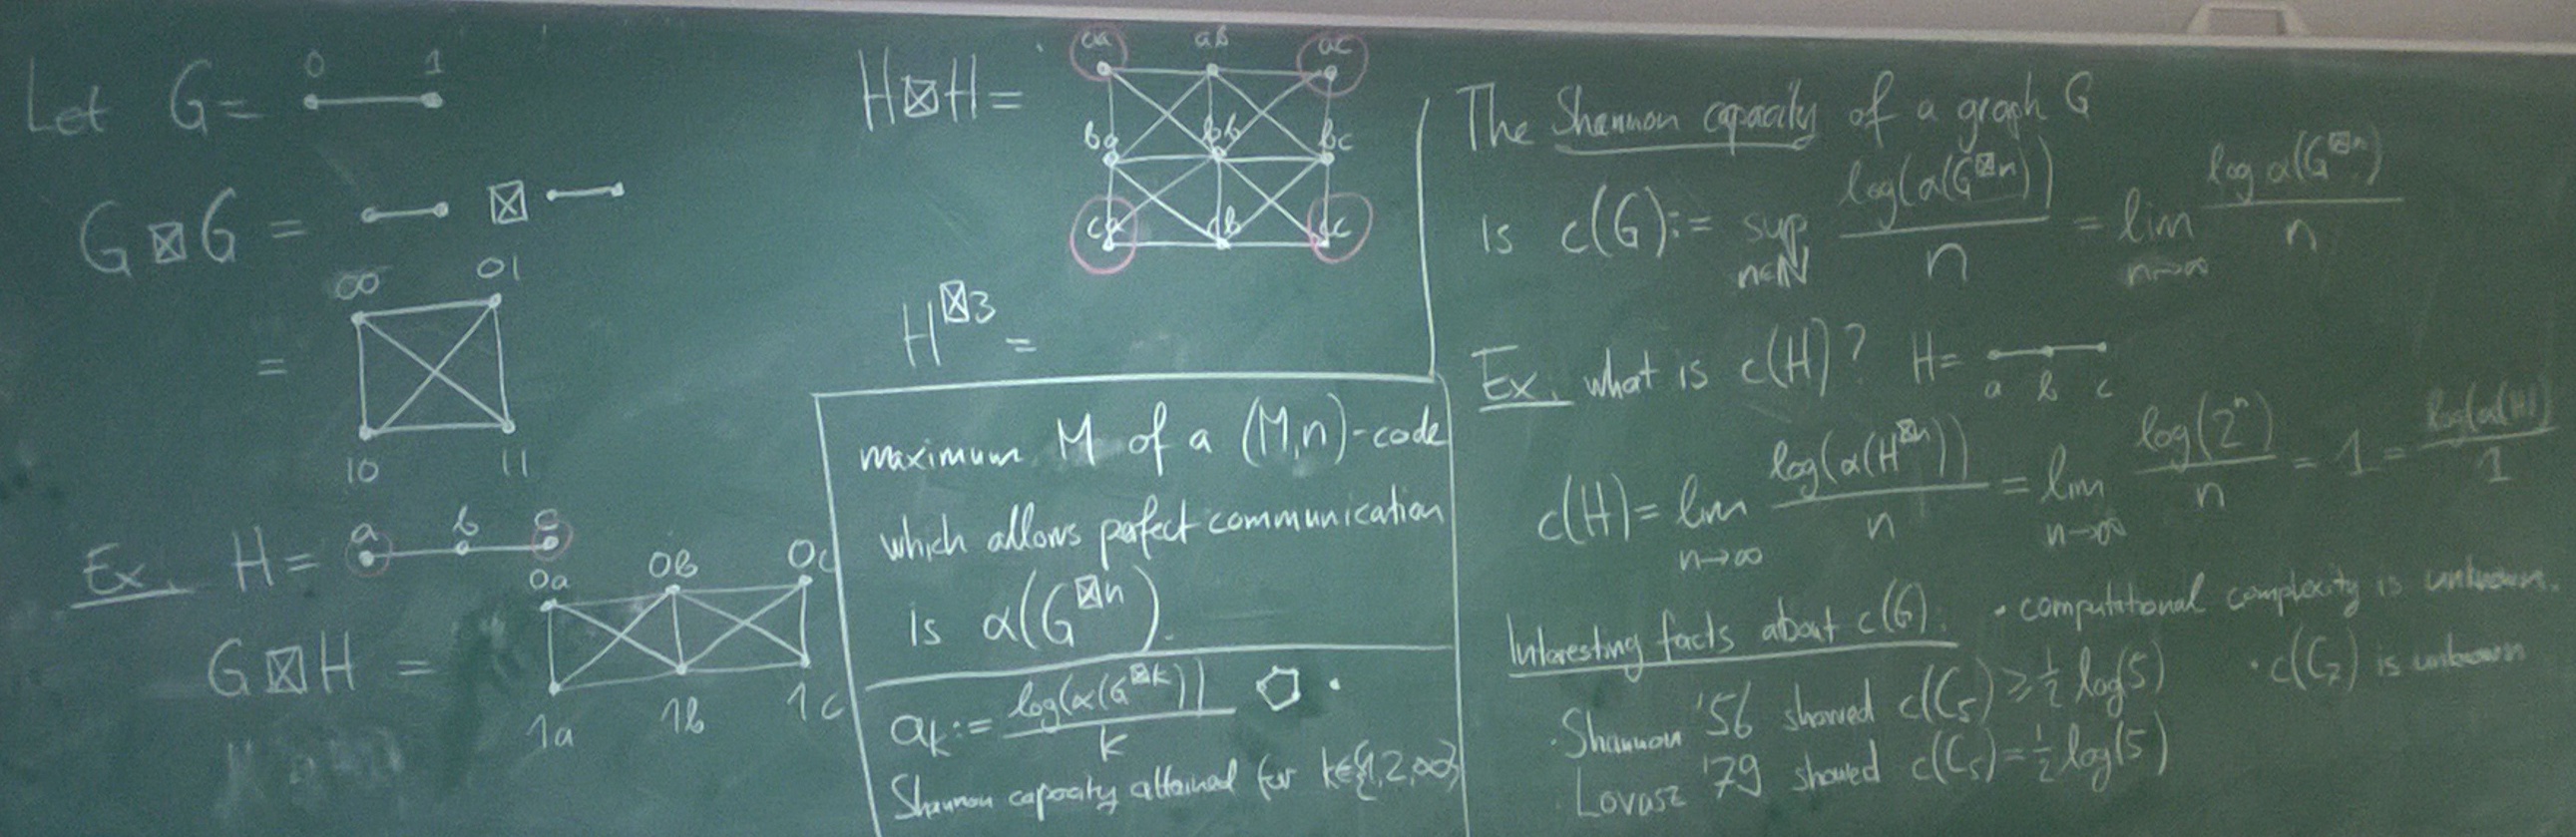 Let G = 0 1
G ⊠ G = ⊠
00 01
=
10 11
Ex. H = a b c
G ⊠ H =
0a 0b 0c
1a 1b 1c
H ⊠ H =
aa ab ac
ba bb bc
ca cb cc
H^{⊠3} =
maximum M of a (M,n)-code
which allows perfect communication
is α(G^{⊠n}).
a_k := log(α(G^{⊠k})) / k
Shannon capacity attained for k∈{1,2,∞}
The Shannon capacity of a graph G
is c(G) := sup_{n∈ℕ} log(α(G^{⊠n})) / n = lim_{n→∞} log α(G^{⊠n}) / n
Ex. what is c(H)? H = a b c
c(H) = lim_{n→∞} log(α(H^{⊠n})) / n = lim_{n→∞} log(2^n) / n = 1 = log(α(H)) / 1
Interesting facts about c(G): • computational complexity is unknown.
• Shannon '56 showed c(C_5) ≥ 1/2 log(5) • c(C_7) is unknown
• Lovasz '79 showed c(C_5) = 1/2 log(5)